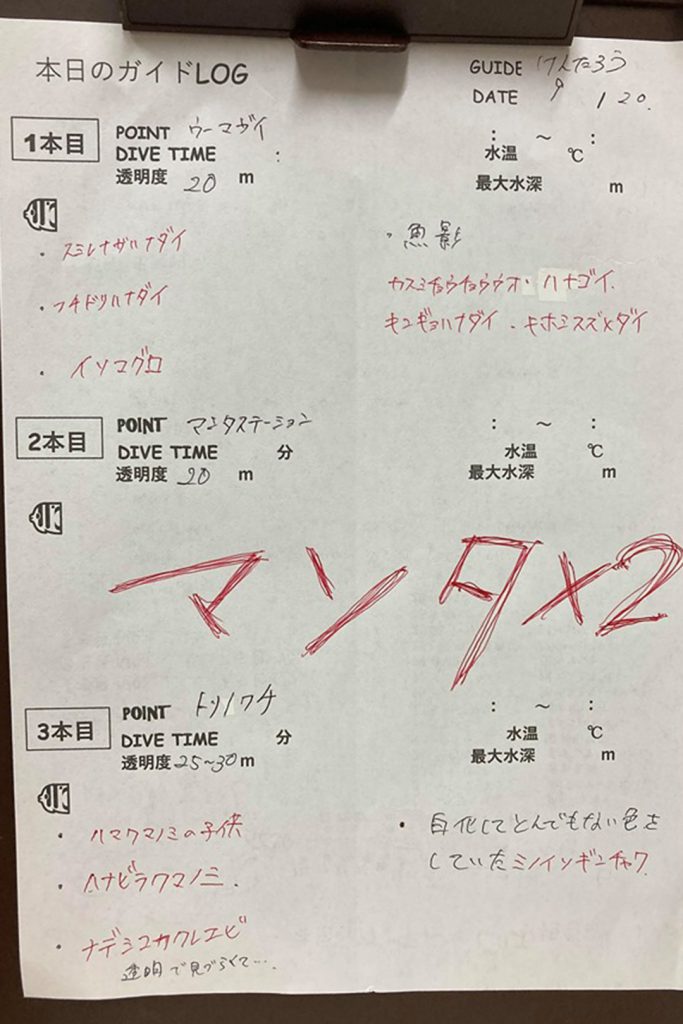 本日のガイドLOG
GUIDE けんたろう
DATE 9 / 20.
1本目
POINT ウーマガイ
DIVE TIME :
透明度 20 m
: ～ :
水温 ℃
最大水深 m
・スミレナガハナダイ
・フチドリハナダイ
・イソマグロ
・魚影
カスミチョウチョウウオ・ハナゴイ.
キンギョハナダイ・キホシスズメダイ
2本目
POINT マンタステーション
DIVE TIME 分
透明度 20 m
: ～ :
水温 ℃
最大水深 m
マンタ×2
3本目
POINT トリノクチ
DIVE TIME 分
透明度 25~30 m
: ～ :
水温 ℃
最大水深 m
・ハマクマノミの子供
・ハナビラクマノミ.
・ナデシコカクレエビ
透明で見づらくて…
・白化してとんでもない色を
していたミノイソギンチャク